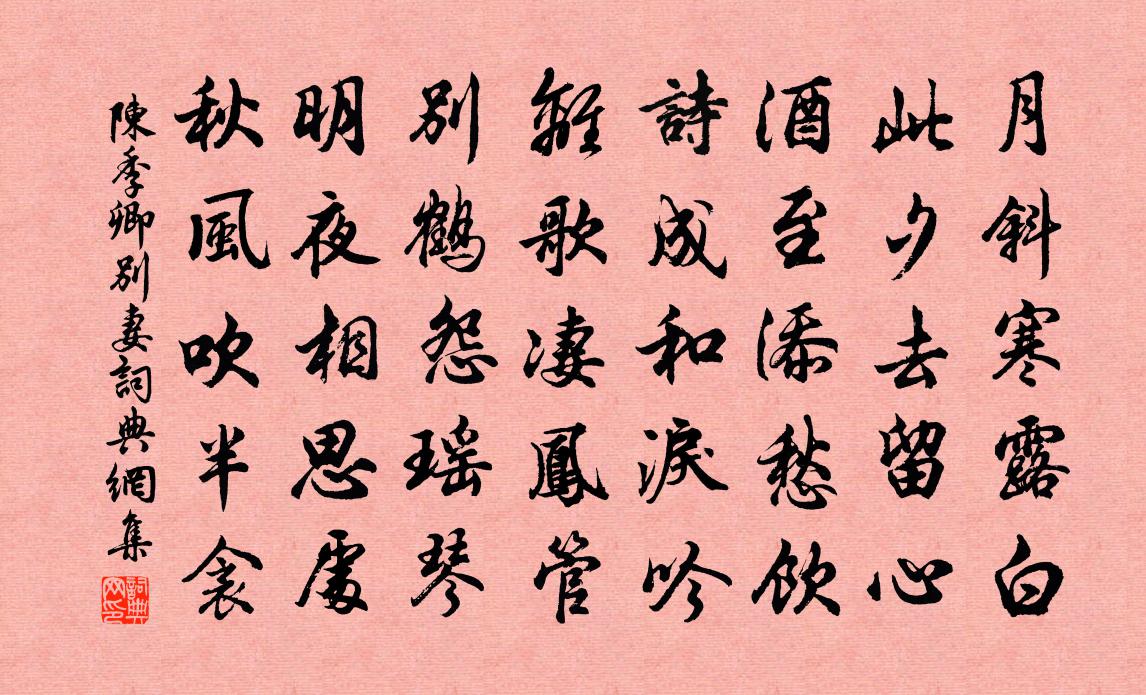 月斜寒露白
此夕去留心
酒至添愁飲
詩成和淚吟
離歌凄鳳管
別鶴怨瑤琴
明夜相思處
秋風吹半衾
陳季卿別妻詞典網集
詞典网印